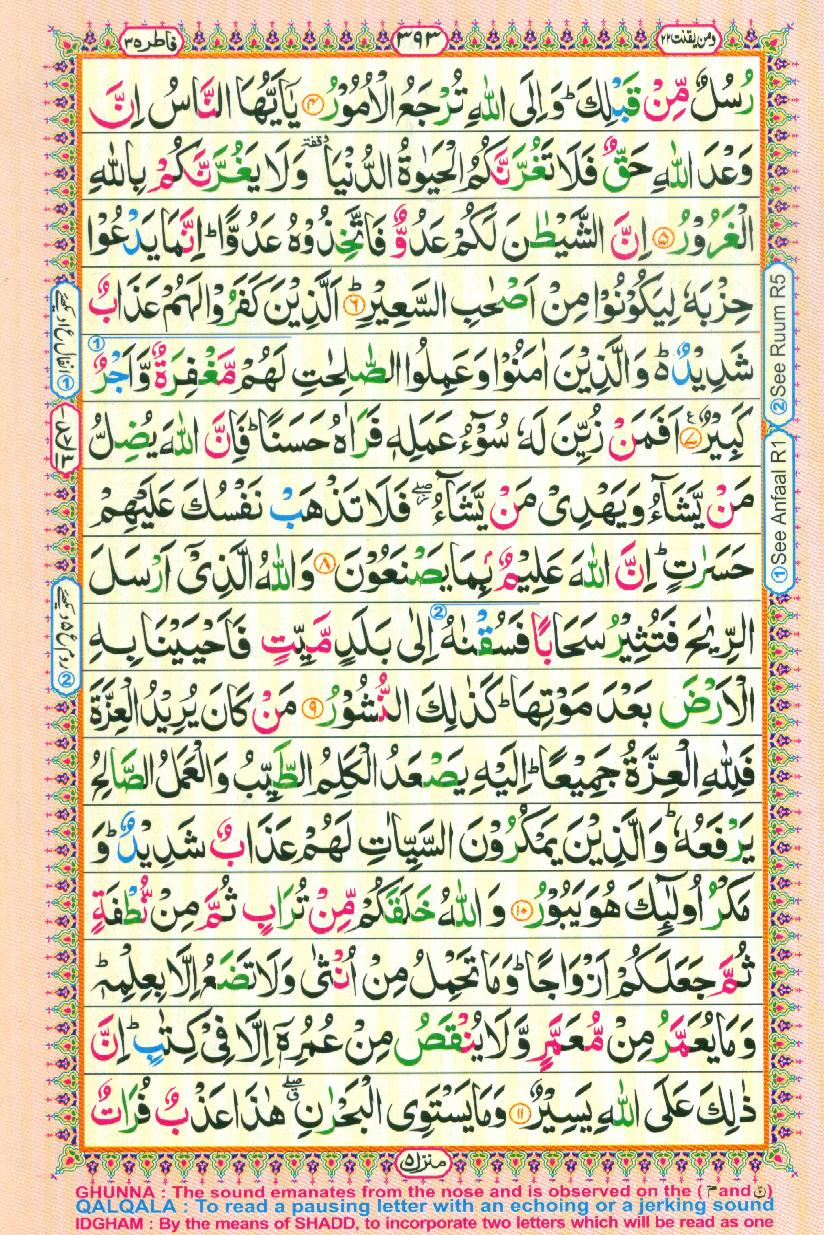 فاطر ۳۵
۳۹۳
ومن یقنت ۲۲
رُسُلٌ مِّنْ قَبْلِكَ ؕ وَاِلَى اللّٰهِ تُرْجَعُ الْاُمُوْرُ ۴ یٰۤاَیُّهَا النَّاسُ اِنَّ
وَعْدَ اللّٰهِ حَقٌّ فَلَا تَغُرَّنَّكُمُ الْحَیٰوةُ الدُّنْیَا وقفة وَلَا یَغُرَّنَّكُمْ بِاللّٰهِ
الْغَرُوْرُ ۵ اِنَّ الشَّیْطٰنَ لَكُمْ عَدُوٌّ فَاتَّخِذُوْهُ عَدُوًّا ؕ اِنَّمَا یَدْعُوْا
حِزْبَهٗ لِیَكُوْنُوْا مِنْ اَصْحٰبِ السَّعِیْرِ ؕ ۶ اَلَّذِیْنَ كَفَرُوْا لَهُمْ عَذَابٌ
شَدِیْدٌ ؕ۬ وَالَّذِیْنَ اٰمَنُوْا وَعَمِلُوا الصّٰلِحٰتِ لَهُمْ مَّغْفِرَةٌ وَّاَجْرٌ ①
كَبِیْرٌ ۧ ۷ اَفَمَنْ زُیِّنَ لَهٗ سُوْٓءُ عَمَلِهٖ فَرَاٰهُ حَسَنًا ؕ فَاِنَّ اللّٰهَ یُضِلُّ
مَنْ یَّشَآءُ وَیَهْدِیْ مَنْ یَّشَآءُ ۖؗ فَلَا تَذْهَبْ نَفْسُكَ عَلَیْهِمْ
حَسَرٰتٍ ؕ اِنَّ اللّٰهَ عَلِیْمٌۢ بِمَا یَصْنَعُوْنَ ۸ وَاللّٰهُ الَّذِیْۤ اَرْسَلَ
الرِّیٰحَ فَتُثِیْرُ سَحَابًا فَسُقْنٰهُ ② اِلٰی بَلَدٍ مَّیِّتٍ فَاَحْیَیْنَا بِهِ
الْاَرْضَ بَعْدَ مَوْتِهَا ؕ كَذٰلِكَ النُّشُوْرُ ۹ مَنْ كَانَ یُرِیْدُ الْعِزَّةَ
فَلِلّٰهِ الْعِزَّةُ جَمِیْعًا ؕ اِلَیْهِ یَصْعَدُ الْكَلِمُ الطَّیِّبُ وَالْعَمَلُ الصَّالِحُ
یَرْفَعُهٗ ؕ وَالَّذِیْنَ یَمْكُرُوْنَ السَّیِّاٰتِ لَهُمْ عَذَابٌ شَدِیْدٌ ؕ وَ
مَكْرُ اُولٰٓىِٕكَ هُوَ یَبُوْرُ ۱۰ وَاللّٰهُ خَلَقَكُمْ مِّنْ تُرَابٍ ثُمَّ مِنْ نُّطْفَةٍ
ثُمَّ جَعَلَكُمْ اَزْوَاجًا ؕ وَمَا تَحْمِلُ مِنْ اُنْثٰی وَلَا تَضَعُ اِلَّا بِعِلْمِهٖ ؕ
وَمَا یُعَمَّرُ مِنْ مُّعَمَّرٍ وَّلَا یُنْقَصُ مِنْ عُمُرِهٖۤ اِلَّا فِیْ كِتٰبٍ ؕ اِنَّ
ذٰلِكَ عَلَی اللّٰهِ یَسِیْرٌ ۱۱ وَمَا یَسْتَوِی الْبَحْرٰنِ ۖۗ هٰذَا عَذْبٌ فُرَاتٌ
①See Anfaal R1 ②See Ruum R5
① انفال ع۱ دیکھئے
② روم ع۵ دیکھئے
منزل ۵
GHUNNA : The sound emanates from the nose and is observed on the ( مّ and نّ )
QALQALA : To read a pausing letter with an echoing or a jerking sound
IDGHAM : By the means of SHADD, to incorporate two letters which will be read as one